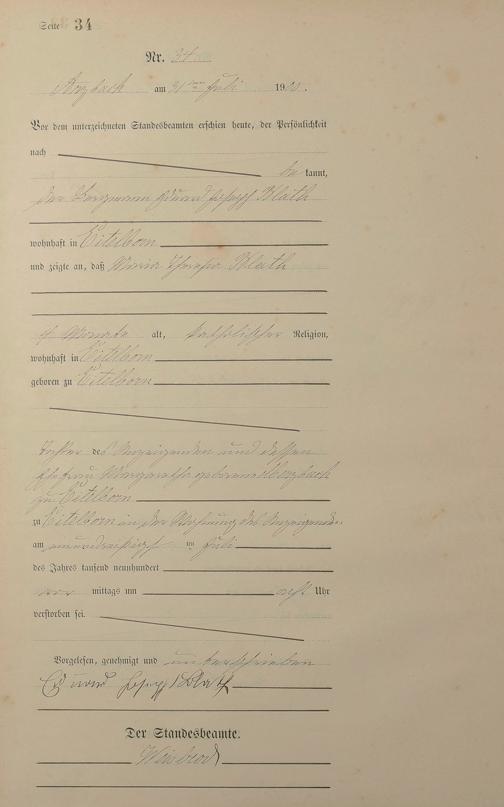 Seite 34
Nr. 34
Arzbach am 31ten Juli 1900.
Vor dem unterzeichneten Standesbeamten erschien heute, der Persönlichkeit
nach
be kannt,
der Bergmann Eduard Joseph Klath
wohnhaft in Eitelborn
und zeigte an, daß Maria Theresia Klath
4 Monate alt, katholischer Religion,
wohnhaft in Eitelborn
geboren zu Eitelborn
Tochter des Anzeigenden und dessen
Ehefrau Margaretha geborene
zu Eitelborn
zu Eitelborn in der Wohnung des Anzeigenden
am einunddreißigsten Juli
des Jahres tausend neunhundert
vor mittags um acht Uhr
verstorben sei.
Vorgelesen, genehmigt und unterschrieben
Eduard Joseph Klath
Der Standesbeamte.
Weisbrod